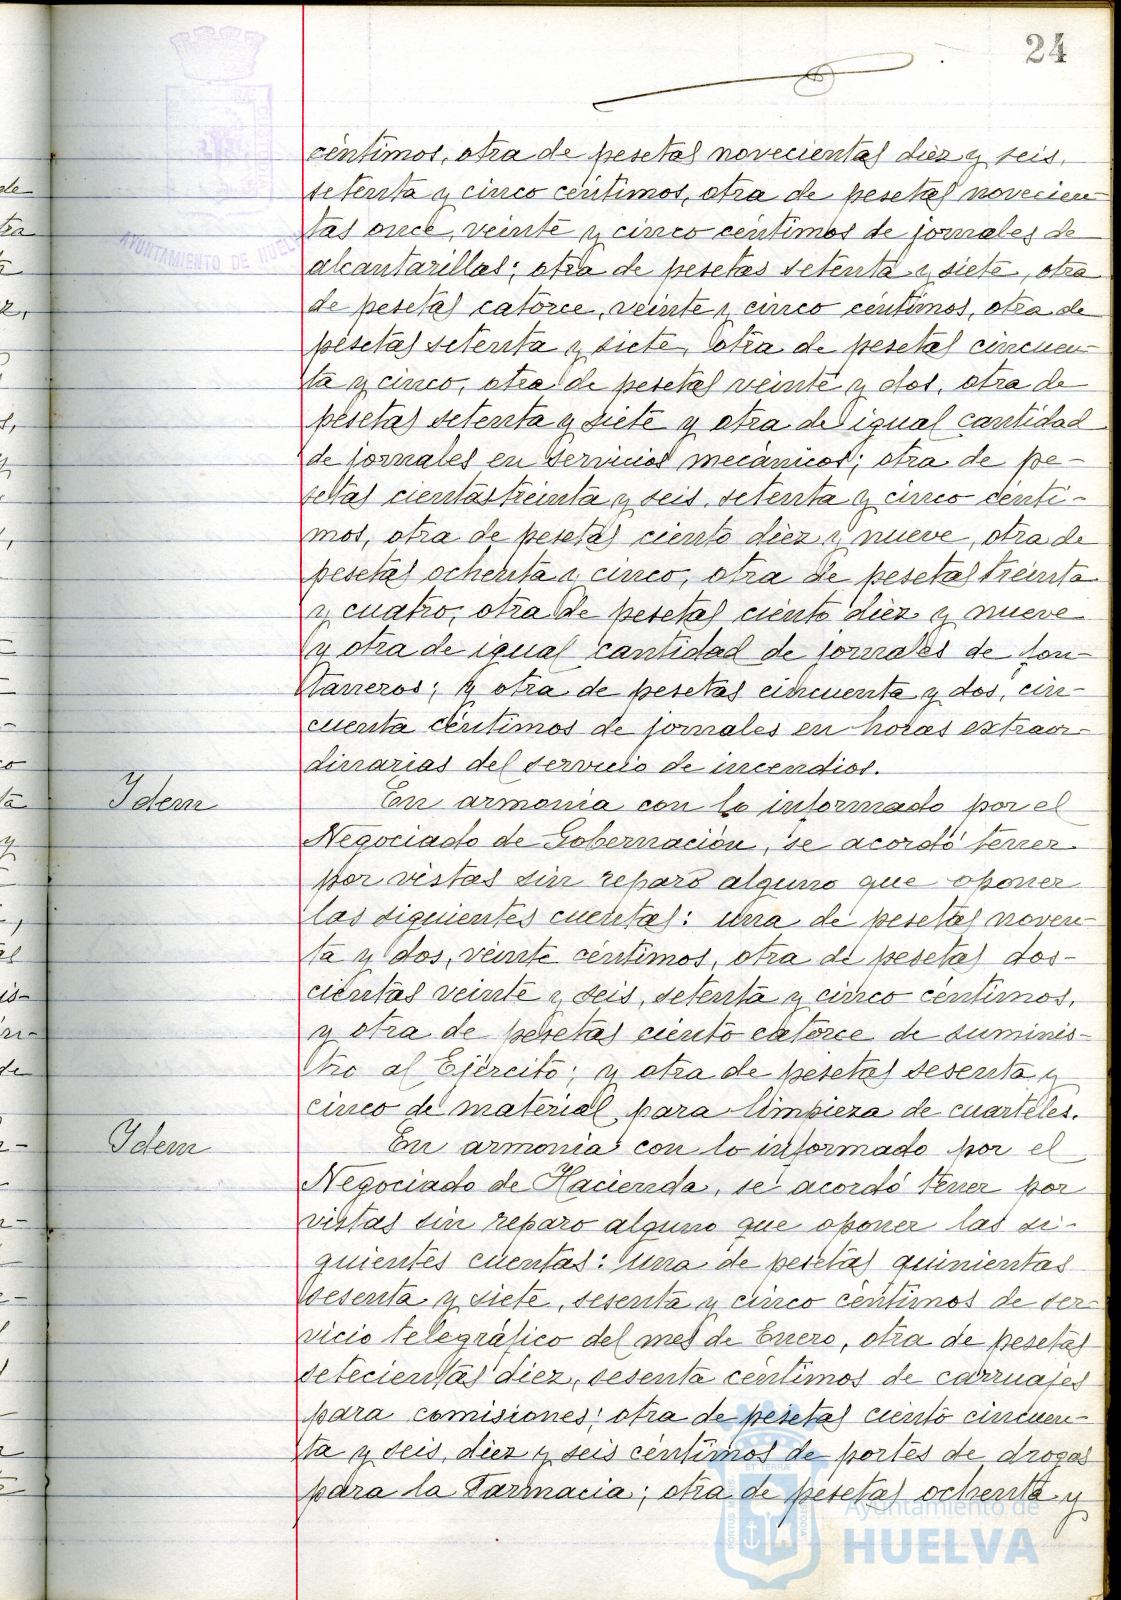 24
céntimos, otra de pesetas novecientas diez y seis,
setenta y cinco céntimos, otra de pesetas novecien-
tas once, veinte y cinco céntimos de jornales de
alcantarillas; otra de pesetas setenta y siete, otra
de pesetas catorce, veinte y cinco céntimos, otra de
pesetas setenta y siete, otra de pesetas cincuen-
ta y cinco, otra de pesetas veinte y dos, otra de
pesetas setenta y siete y otra de igual cantidad
de jornales en servicios mecánicos; otra de pe-
setas cientas treinta y seis, setenta y cinco cénti-
mos, otra de pesetas ciento diez y nueve, otra de
pesetas ochenta y cinco, otra de pesetas treinta
y cuatro, otra de pesetas ciento diez y nueve
y otra de igual cantidad de jornales de fon-
taneros; y otra de pesetas cincuenta y dos, cin-
cuenta céntimos de jornales en horas extraor-
dinarias del servicio de incendios.
Idem
En armonia con lo informado por el
Negociado de Gobernación, se acordó tener
por vistas sin reparo alguno que oponer
las siguientes cuentas: una de pesetas noven-
ta y dos, veinte céntimos, otra de pesetas dos-
cientas veinte y seis, setenta y cinco céntimos,
y otra de pesetas ciento catorce de suminis-
tro al Ejército; y otra de pesetas sesenta y
cinco de material para limpieza de cuarteles.
Idem
En armonia con lo informado por el
Negociado de Hacienda, se acordó tener por
vistas sin reparo alguno que oponer las si-
guientes cuentas: una de pesetas quinientas
sesenta y siete, sesenta y cinco céntimos de ser-
vicio telegráfico del mes de Enero, otra de pesetas
setecientas diez, sesenta céntimos de carruajes
para comisiones; otra de pesetas ciento cincuen-
ta y seis, diez y seis céntimos de portes de drogas
para la Farmacia; otra de pesetas ochenta y
AYUNTAMIENTO DE HUELVA
Ayuntamiento de
HUELVA